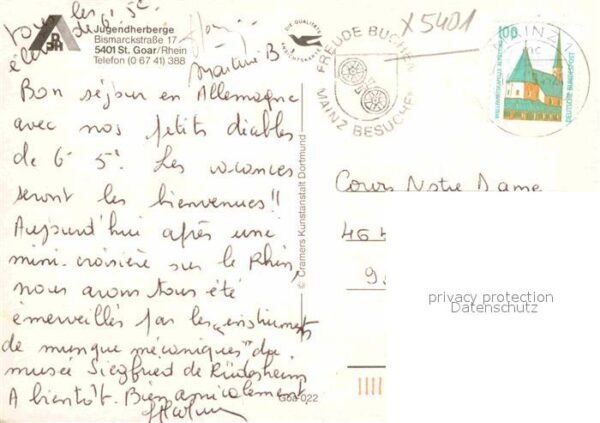 Jugendherberge
Bismarckstraße 17
5401 St. Goar/Rhein
Telefon (0 67 41) 388
DIE QUALITÄTS
ANSICHTSKARTE
Martine B
X 5401
FREUDE BUCHEN
MAINZ BESUCHEN
MAINZ 1
100
WALLFAHRTSKAPELLE ALTÖTTING
DEUTSCHE BUNDESPOST
Bon séjour en Allemagne
avec nos petits diables
de 6e 5e. Les vacances
seront les bienvenues!!
Aujourd'hui après une
mini-croisière sur le Rhin,
nous avons tous été
émerveillés par les "instruments
de musique mécaniques" du
musée Siegfried de Rüdesheim
A bientôt. Bien amicalement,
© Cramers Kunstanstalt Dortmund
Goa 022
Cours Notre Dame
46
9
privacy protection
Datenschutz